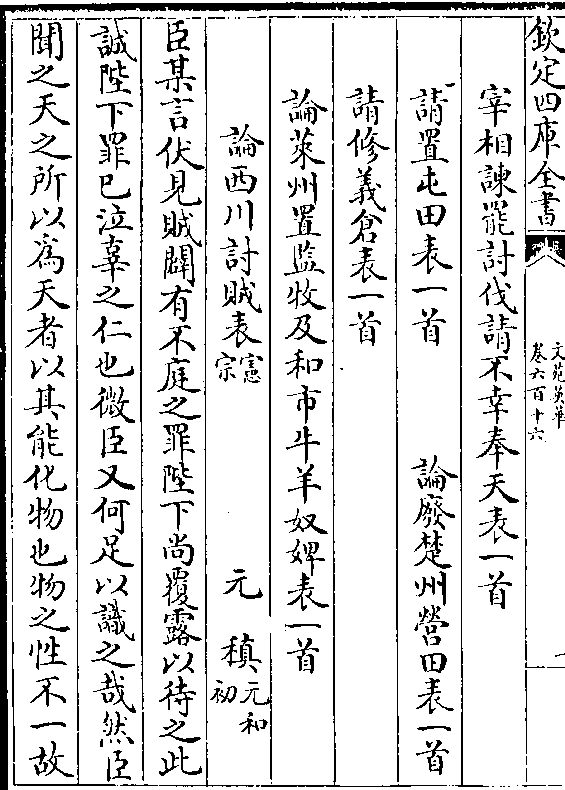 欽定四庫全書
文苑英華
卷六百十六
一
宰相諫罷討伐請不幸奉天表一首
請置屯田表一首　論廢楚州營田表一首
請修義倉表一首
論萊州置監牧及和市牛羊奴婢表一首
論西川討賊表憲宗　元稹元和初
臣某言伏見賊闢有不庭之罪陛下尚覆露以待之此
誠陛下罪已泣辜之仁也微臣又何足以議之哉然臣
聞之天之所以為天者以其能化物也物之性不一故